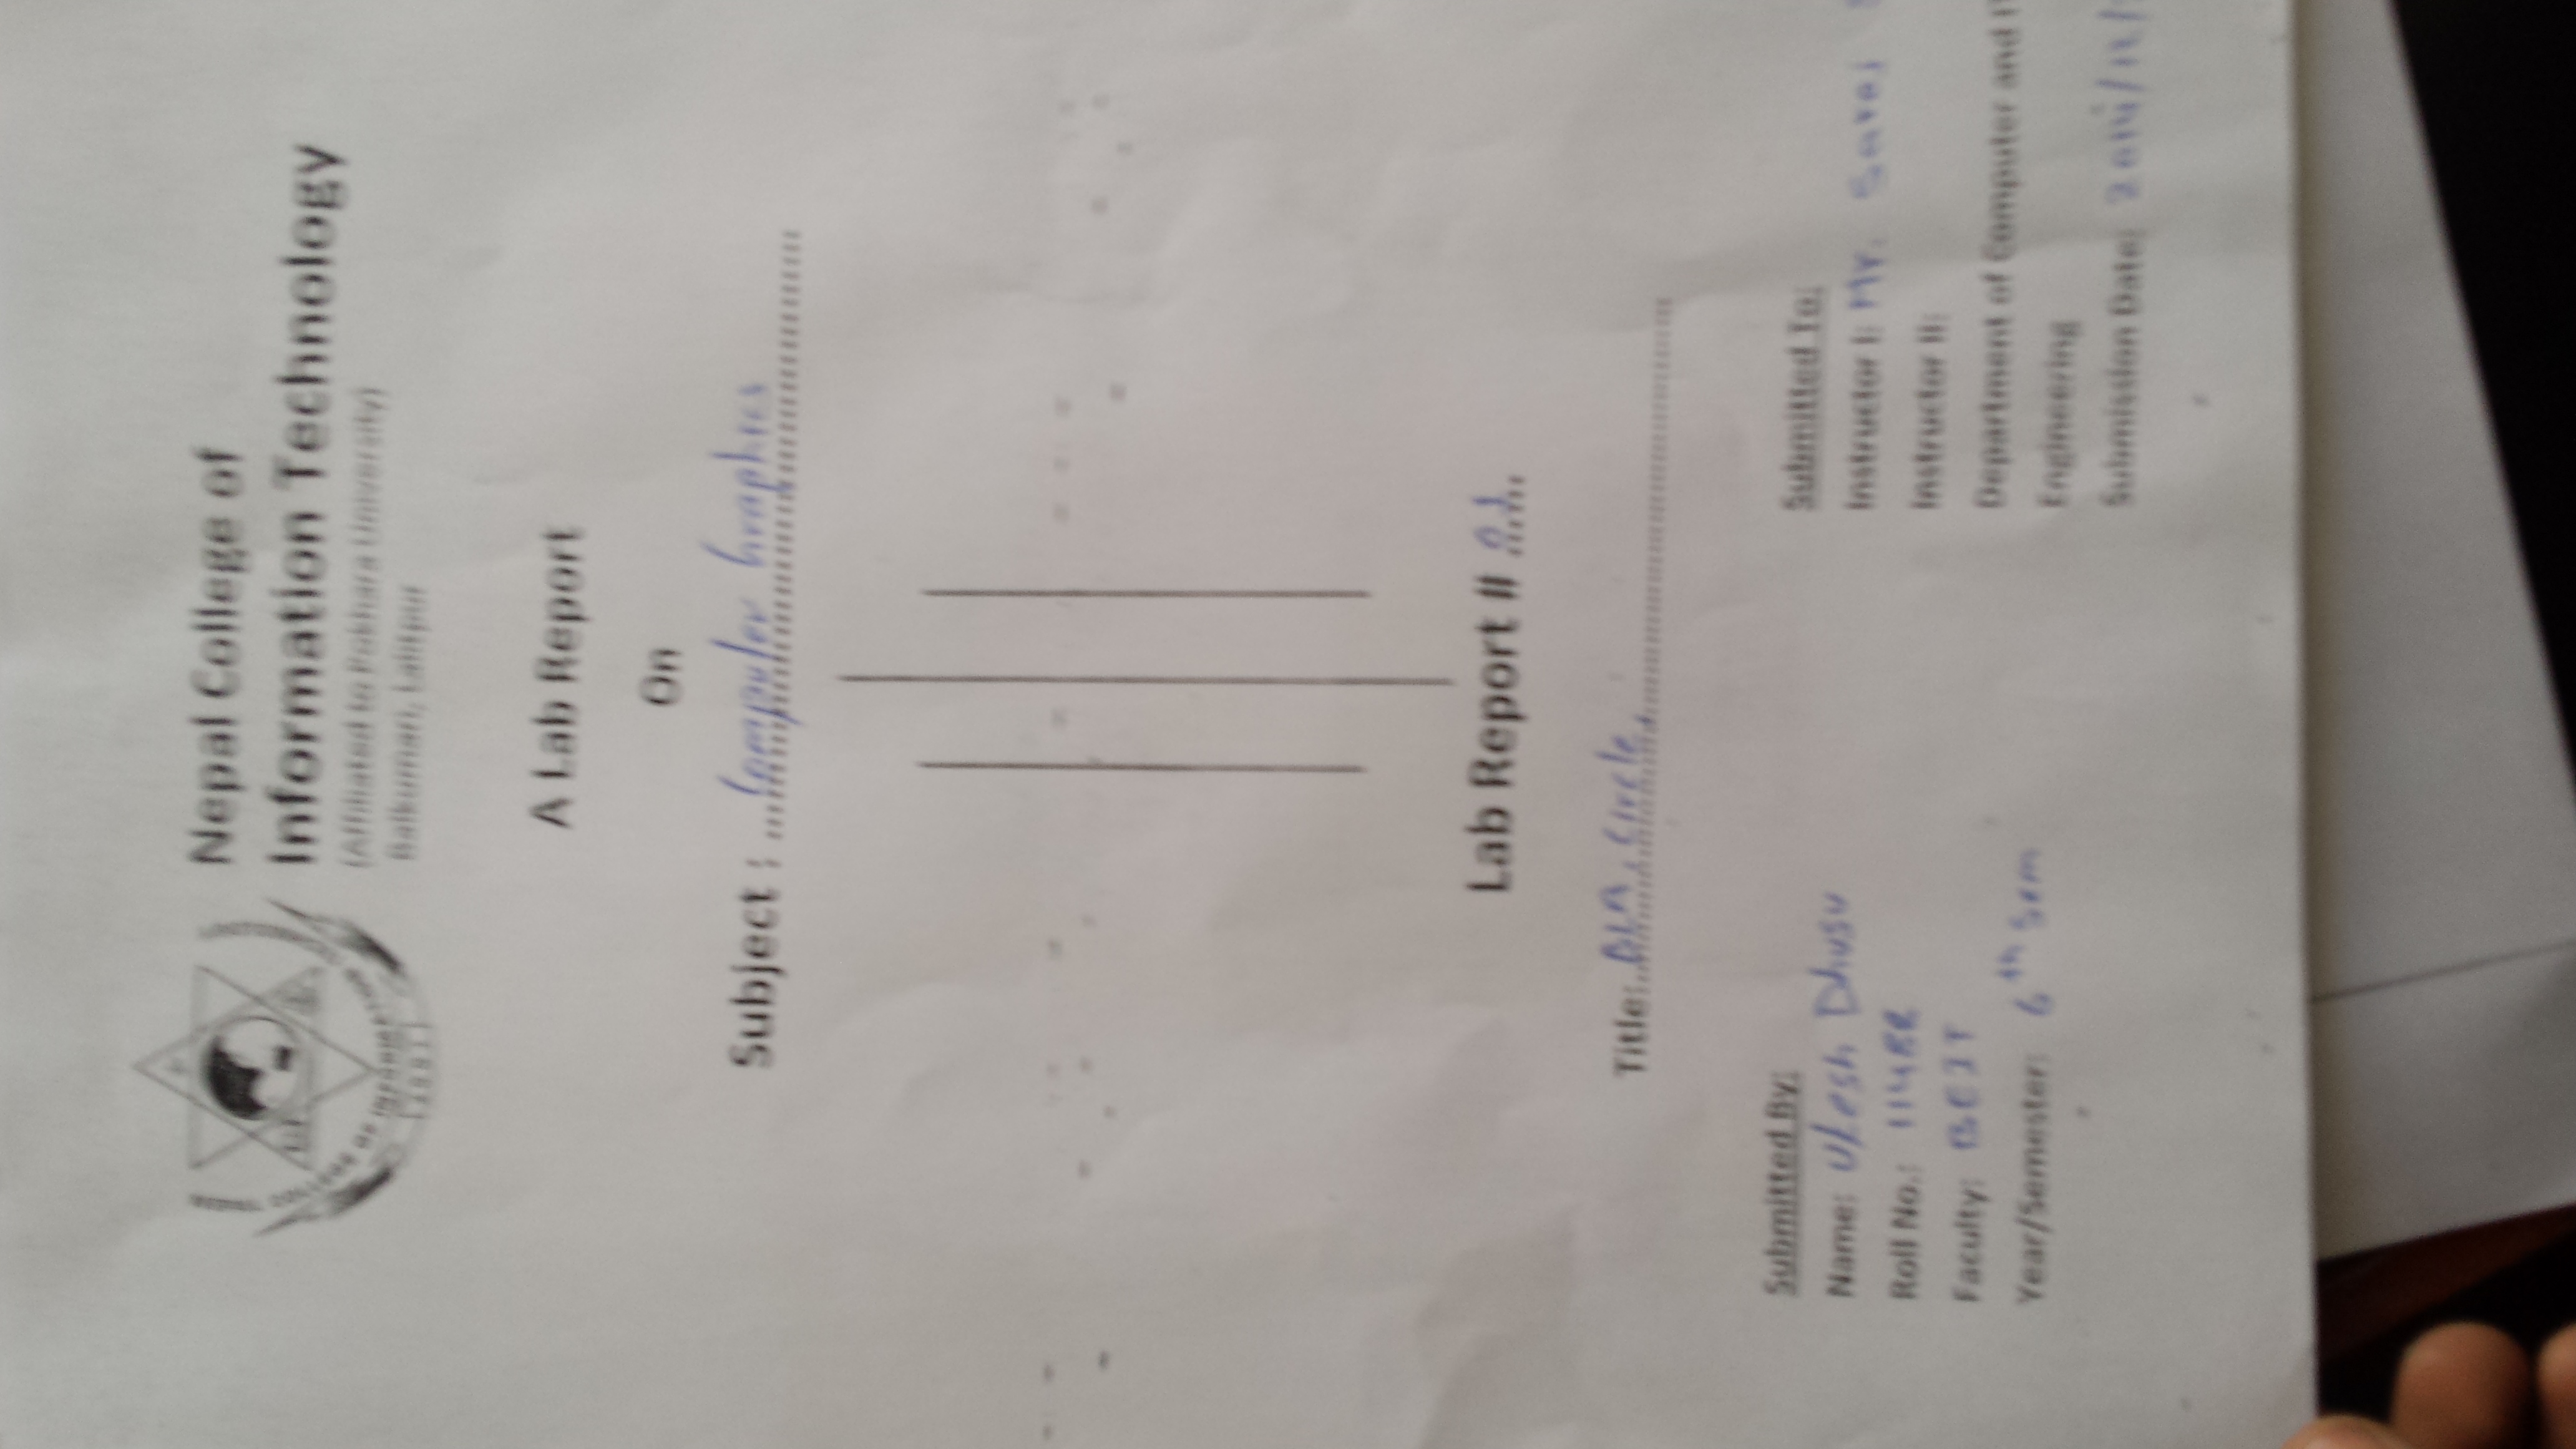 Nepal College of
Information Technology
(Affiliated to Pokhara University)
Balkumari, Lalitpur
A Lab Report
On
Subject : Computer Graphics
Lab Report # 01
Title: Circle
Submitted By:
Name: Dhusu
Roll No.:
Faculty: BEIT
Year/Semester: 6th Sem
Submitted To:
Instructor I: Mr. Saroj
Instructor II:
Department of Computer and IT
Engineering
Submission Date: